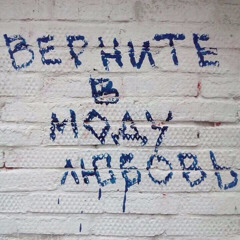 ВЕРНИТЕ
В
МОДУ
ЛЮБОВЬ